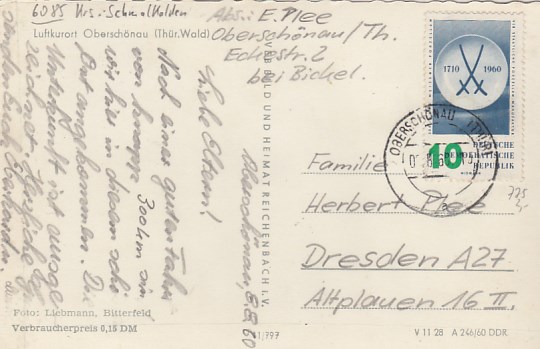 6085 Krs. Schmalkalden
Luftkurort Oberschönau (Thür. Wald)
Abs.: E. Plee
Oberschönau/Th.
Eckstr. 2
bei Bickel.
Oberschönau, 8.8.60
Liebe Eltern!
Nach einer guten Fahrt
von knapp 300 km sind
wir hier in diesem schö
Ort angekommen. Die
Unterkunft ist ausge
zeichnet. Herzliche
Eberhard
Foto: Liebmann, Bitterfeld
Verbraucherpreis 0,15 DM
VEB BILD UND HEIMAT REICHENBACH i. V.
1/797
1710 1960
10
DEUTSCHE
DEMOKRATISCHE
REPUBLIK
OBERSCHÖNAU
Familie
Herbert Plee
Dresden A27
Altplauen 16 II.
725
V 11 28 A 246/60 DDR